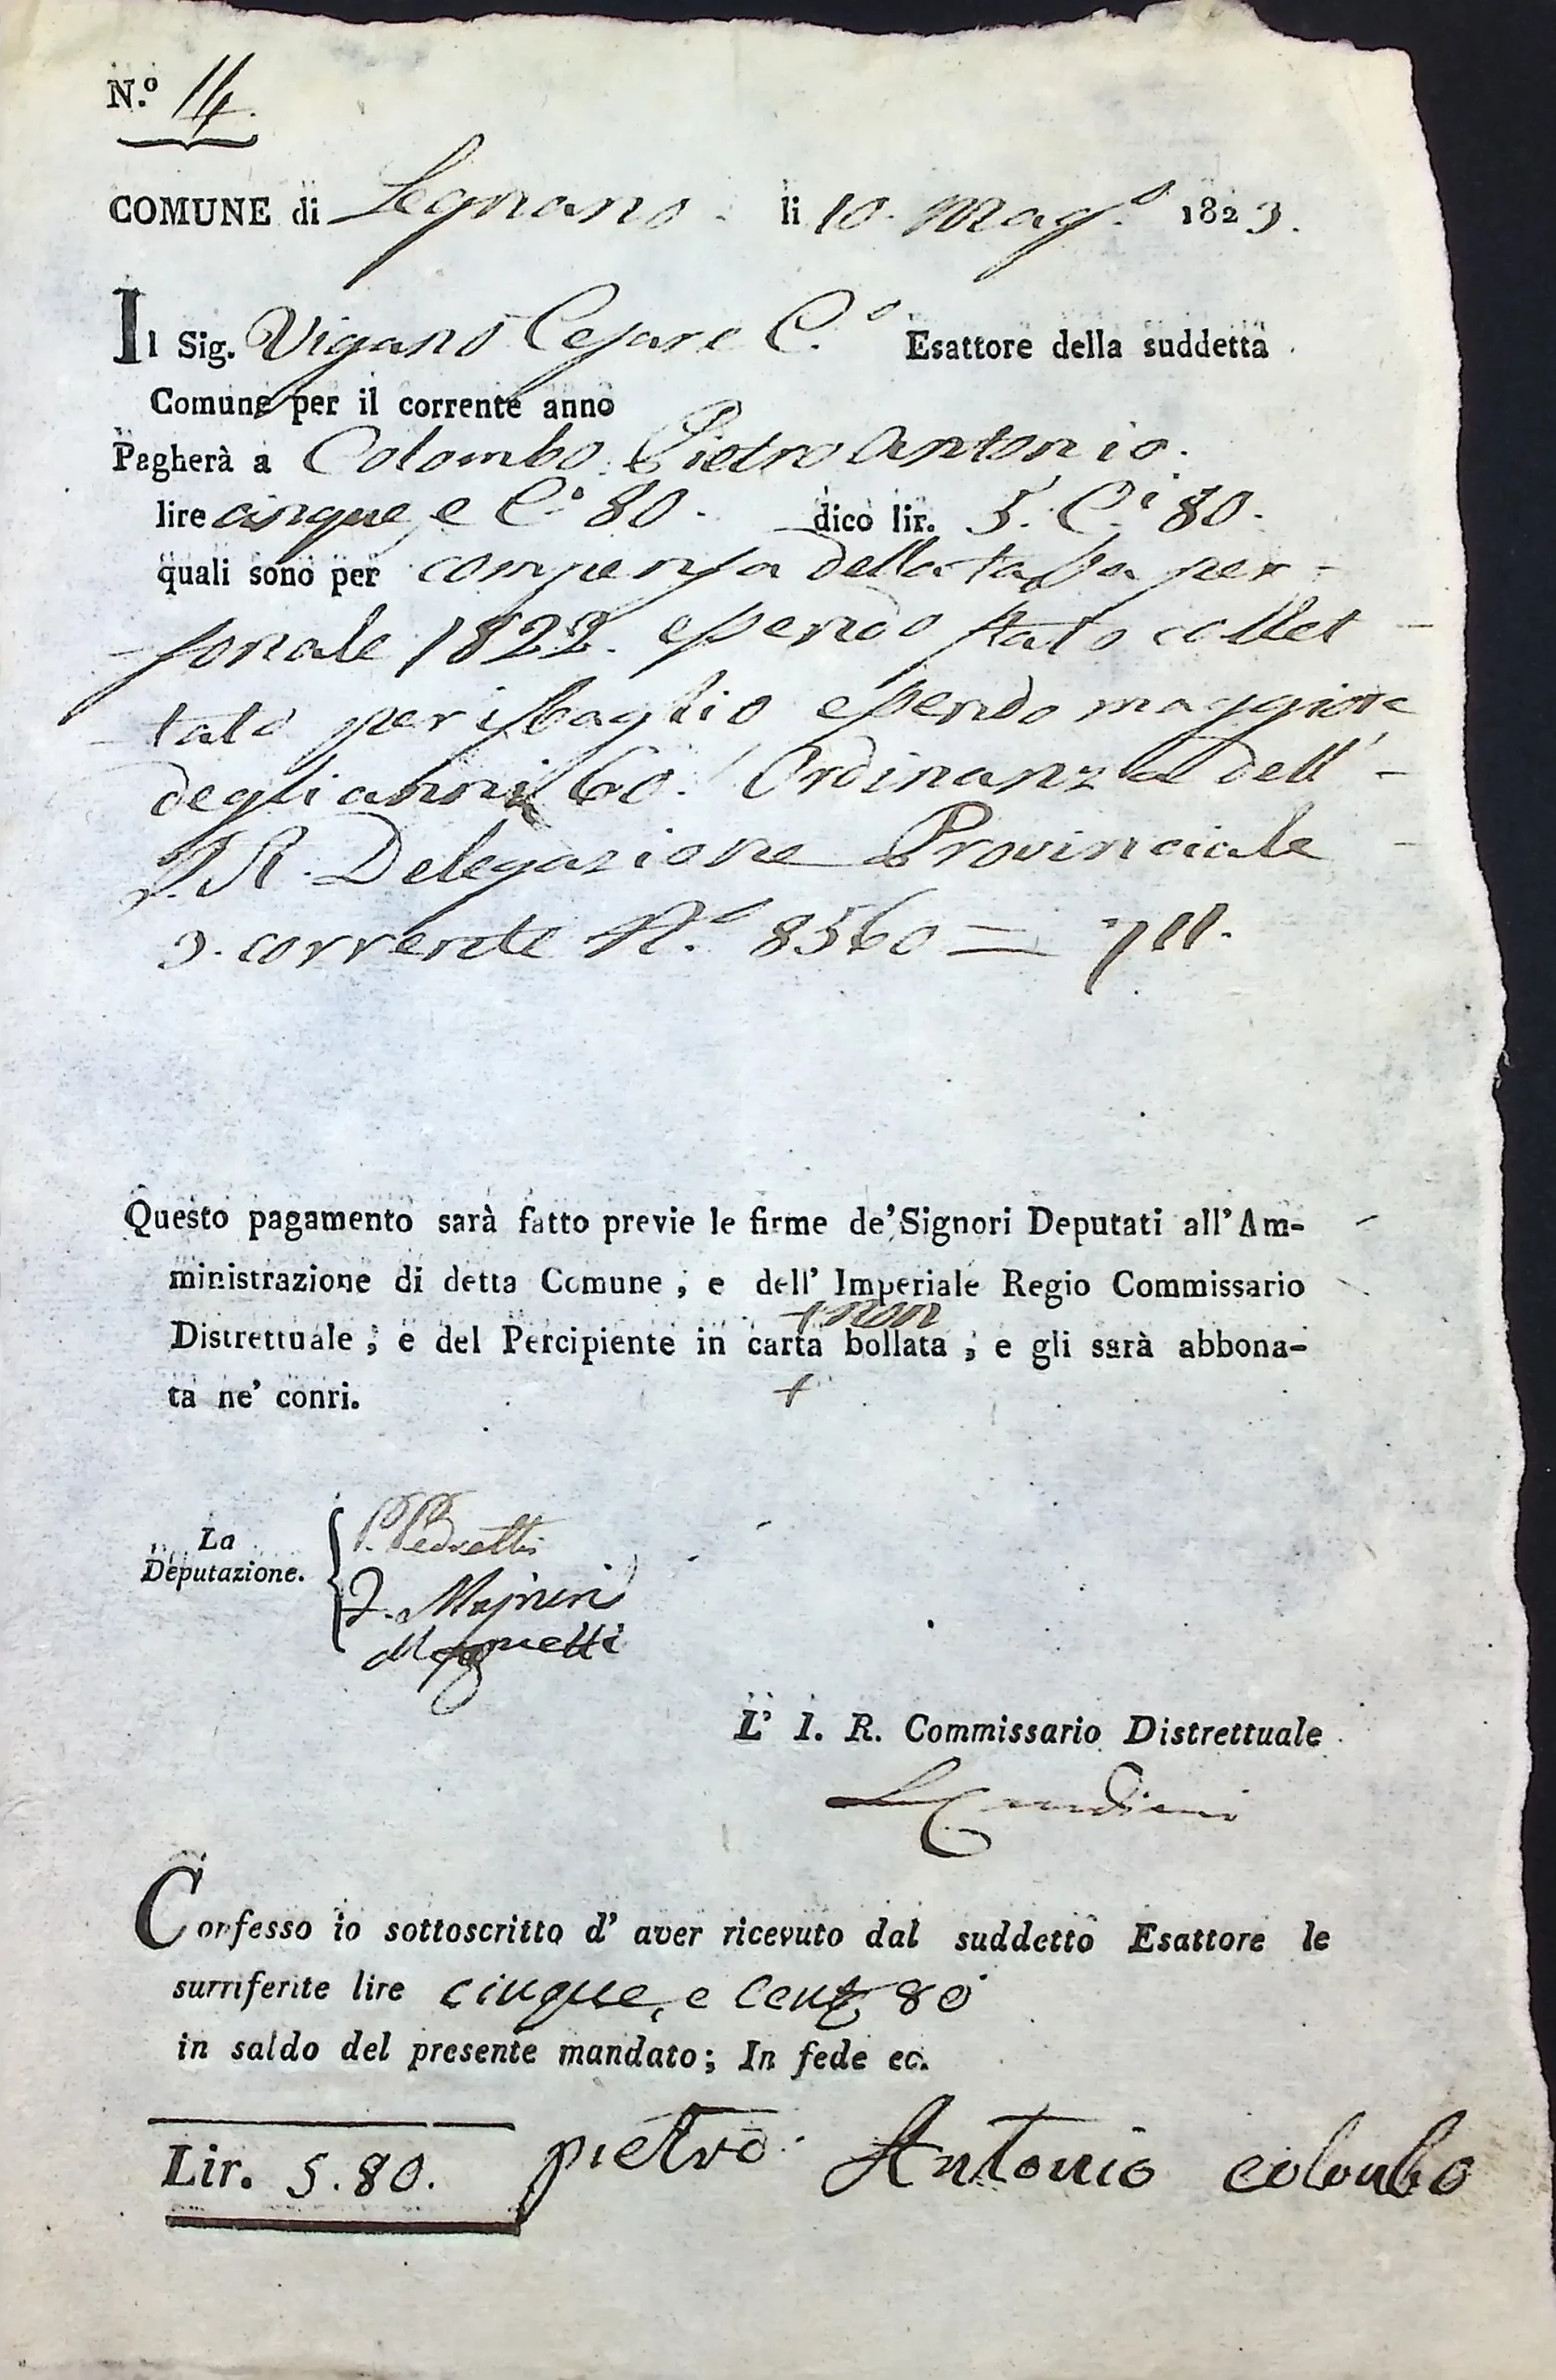 N.º 14.
COMUNE di Legnano. li 10. Mag.º 1823.
Il Sig. Viganò Cesare C.º Esattore della suddetta
Comune per il corrente anno
Pagherà a Colombo Pietro Antonio.
lire cinque, e C.i 80. dico lir. 5. C.i 80.
quali sono per compensa della tassa per-
sonale 1822. essendo stato collet-
tato per isbaglio essendo maggiore
degli anni 60. Ordinanza dell'
I. R. Delegazione Provinciale
3. corrente N.º 8560 = 711.
Questo pagamento sarà fatto previe le firme de' Signori Deputati all' Am-
ministrazione di detta Comune, e dell' Imperiale Regio Commissario
+ non
Distrettuale, e del Percipiente in carta bollata, e gli sarà abbona-
ta ne' conri. +
La
Deputazione. { P. Pedretti
Majneri
L' I. R. Commissario Distrettuale
Confesso io sottoscritto d' aver ricevuto dal suddetto Esattore le
surriferite lire cinque, e Cent. 80
in saldo del presente mandato; In fede ec.
Lir. 5.80. pietro Antonio colombo